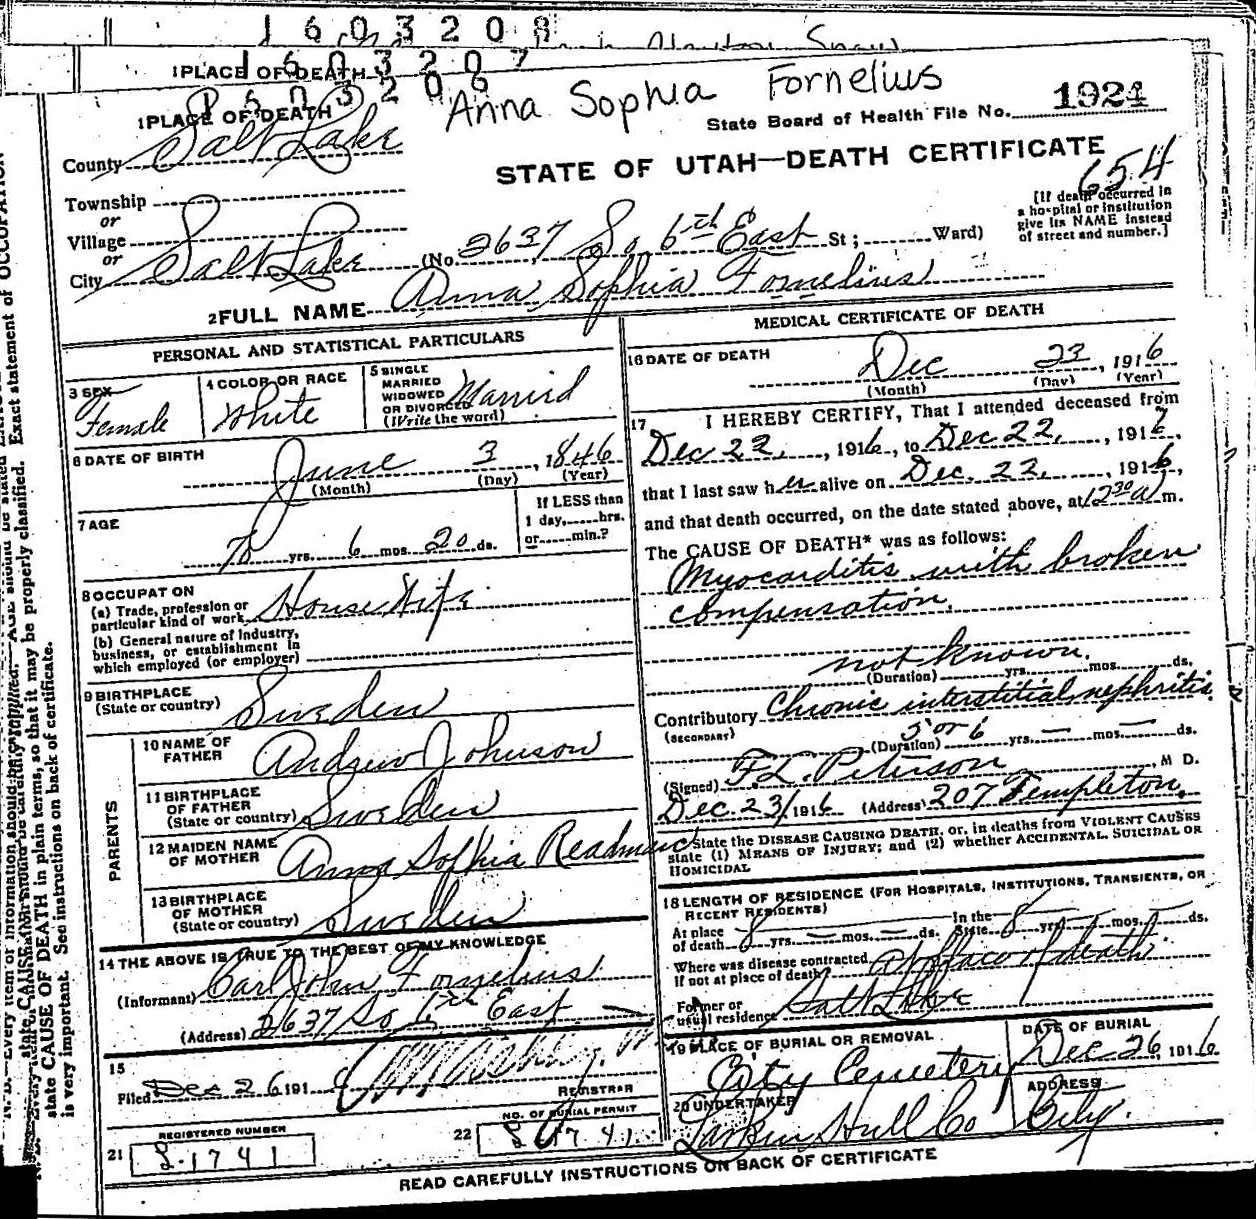 1603208
1603207
1 PLACE OF DEATH
Anna Sophia Fornelius
1 PLACE OF DEATH
State Board of Health File No. 1924
County Salt Lake
STATE OF UTAH—DEATH CERTIFICATE
654
Township
or
Village
or
City Salt Lake (No. 2637 So 6th East St; Ward)
[If death occurred in
a hospital or institution
give its NAME instead
of street and number.]
2 FULL NAME Anna Sophia Fornelius
PERSONAL AND STATISTICAL PARTICULARS
3 SEX
Female
4 COLOR OR RACE
White
5 SINGLE
MARRIED
WIDOWED
OR DIVORCED
(Write the word)
Married
6 DATE OF BIRTH
June 3, 1846
(Month) (Day) (Year)
7 AGE
70 yrs. 6 mos. 20 ds.
If LESS than
1 day, hrs.
or min.?
8 OCCUPATION
(a) Trade, profession or
particular kind of work House Wife
(b) General nature of Industry,
business, or establishment in
which employed (or employer)
9 BIRTHPLACE
(State or country) Sweden
PARENTS
10 NAME OF
FATHER Andrew Johnson
11 BIRTHPLACE
OF FATHER
(State or country) Sweden
12 MAIDEN NAME
OF MOTHER Anna Sophia
13 BIRTHPLACE
OF MOTHER
(State or country) Sweden
14 THE ABOVE IS TRUE TO THE BEST OF MY KNOWLEDGE
(Informant) Carl John Fornelius
(Address) 2637 So 6th East
15
Filed Dec 26 191 6
REGISTRAR
REGISTERED NUMBER
21 S-1741
NO. OF BURIAL PERMIT
22 1741
MEDICAL CERTIFICATE OF DEATH
16 DATE OF DEATH
Dec 23, 1916
(Month) (Day) (Year)
17 I HEREBY CERTIFY, That I attended deceased from
Dec 22, 1916, to Dec 22, 1916,
that I last saw her alive on Dec. 22, 1916,
and that death occurred, on the date stated above, at 12 30 a m.
The CAUSE OF DEATH* was as follows:
Myocarditis with broken
compensation.
not known.
(Duration) yrs. mos. ds.
Contributory Chronic interstitial nephritis.
(SECONDARY)
(Duration) 5 or 6 yrs. — mos. — ds.
(Signed) F.L. Peterson, M D.
Dec. 23/1916 (Address) 207 Templeton.
*State the DISEASE CAUSING DEATH, or, in deaths from VIOLENT CAUSES
state (1) MEANS OF INJURY; and (2) whether ACCIDENTAL, SUICIDAL OR
HOMICIDAL
18 LENGTH OF RESIDENCE (FOR HOSPITALS, INSTITUTIONS, TRANSIENTS, OR
RECENT RESIDENTS)
At place
of death 8 yrs. — mos. — ds. In the State 8 yrs. — mos. — ds.
Where was disease contracted
If not at place of death? at place of death.
Former or
usual residence Salt Lake
19 PLACE OF BURIAL OR REMOVAL
City Cemetery
DATE OF BURIAL
Dec 26, 1916
20 UNDERTAKER
Larkin Hull Co
ADDRESS
City.
READ CAREFULLY INSTRUCTIONS ON BACK OF CERTIFICATE
state CAUSE OF DEATH in plain terms, so that it may be properly classified. Exact statement of OCCUPATION
is very important. See instructions on back of certificate.